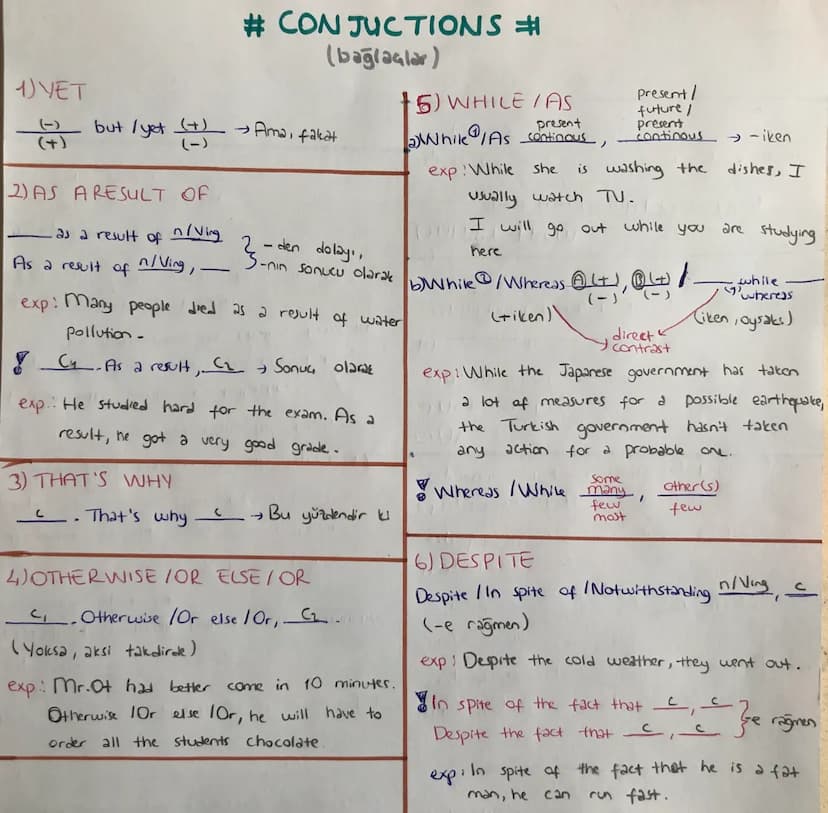 # CONJUCTIONS #
(bağlaçlar)
1) YET
(-) but / yet (+) → Ama, fakat
(+) (-)
2) AS A RESULT OF
____ as a result of n/Ving
As a result of n/Ving, __ } -den dolayı,
-nın sonucu olarak
exp: Many people died as a result of water
pollution.
! C1. As a result, C2 → Sonuç olarak
exp: He studied hard for the exam. As a
result, he got a very good grade.
3) THAT'S WHY
c. That's why c → Bu yüzdendir ki
4) OTHERWISE / OR ELSE / OR
C1. Otherwise / Or else / Or, C2.
(Yoksa, aksi takdirde)
exp: Mr.Ot had better come in 10 minutes.
Otherwise / Or else / Or, he will have to
order all the students chocolate
5) WHILE / AS
present /
future /
present present
a) While① / As continous, continous → -iken
exp: While she is washing the dishes, I
usually watch TV.
I will go out while you are studying
here
b) While② / Whereas Ⓐ(+), Ⓑ(+) / ____ while ____
(-) (-) whereas
(+iken) (iken, oysaki)
direct
contrast
exp: While the Japanese government has taken
a lot of measures for a possible earthquake,
the Turkish government hasn't taken
any action for a probable one.
! Whereas / While some many, other(s)
few few
most
6) DESPITE
Despite / In spite of / Notwithstanding n/Ving, c
(-e rağmen)
exp: Despite the cold weather, they went out.
! In spite of the fact that c, c
Despite the fact that c, c } -e rağmen
exp: In spite of the fact that he is a fat
man, he can run fast.